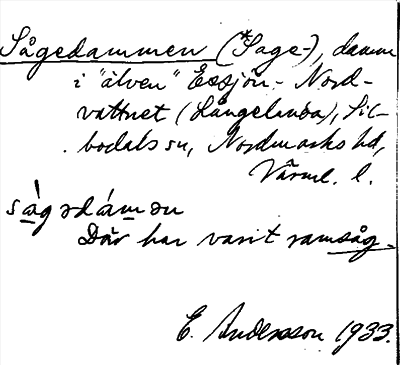 Sågedammen (*Sage-), damm
i "älven" Essjön - Nord-
vattnet (Långelunda), Sil-
bodals sn, Nordmarks hd,
Värml. l.
sàgədámən
Där har varit ramsåg.
E. Andersson 1933.